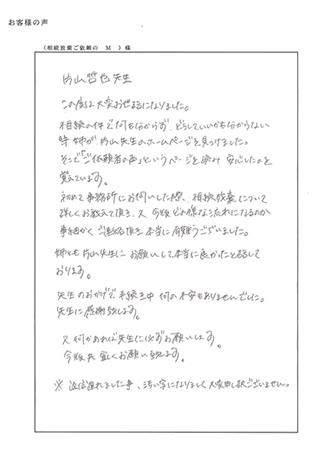 お客様の声
(相続放棄ご依頼の M )様
片山哲也先生
この度は大変お世話になりました。
相続の件で何も分からず、どうしていいかも分からない
時、姉が片山先生のホームページを見つけました。
そこで"ご依頼者の声"というページを読み安心したのを
覚えています。
初めて事務所にお伺いした際、相続放棄について
詳しくお教えて頂き、又今後どの様な流れになるのか
事細かくご連絡頂き本当に有難うございました。
姉とも片山先生にお願いして本当に良かったと話して
おります。
先生のおかげで手続き中何の不安もありませんでした。
先生に感謝致します。
又何かあれば先生に必ずお願いします。
今後共宜しくお願い致します。
※ 返信遅れました事、汚い字になりまして大変申し訳ございません。